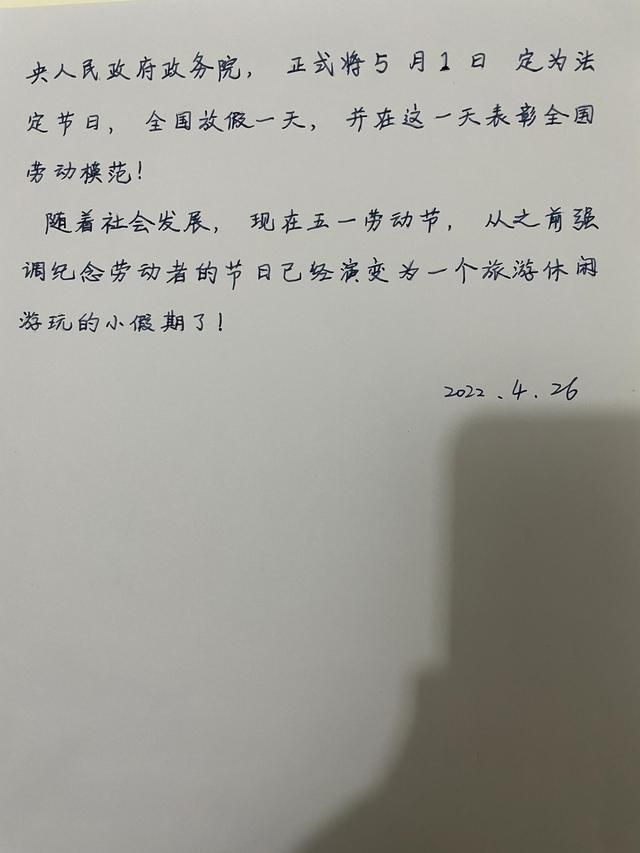 央人民政府政务院，正式将5月1日 定为法
定节日，全国放假一天，并在这一天表彰全国
劳动模范！
随着社会发展，现在五一劳动节，从之前强
调纪念劳动者的节日已经演变为一个旅游休闲
游玩的小假期了！
2022.4.26